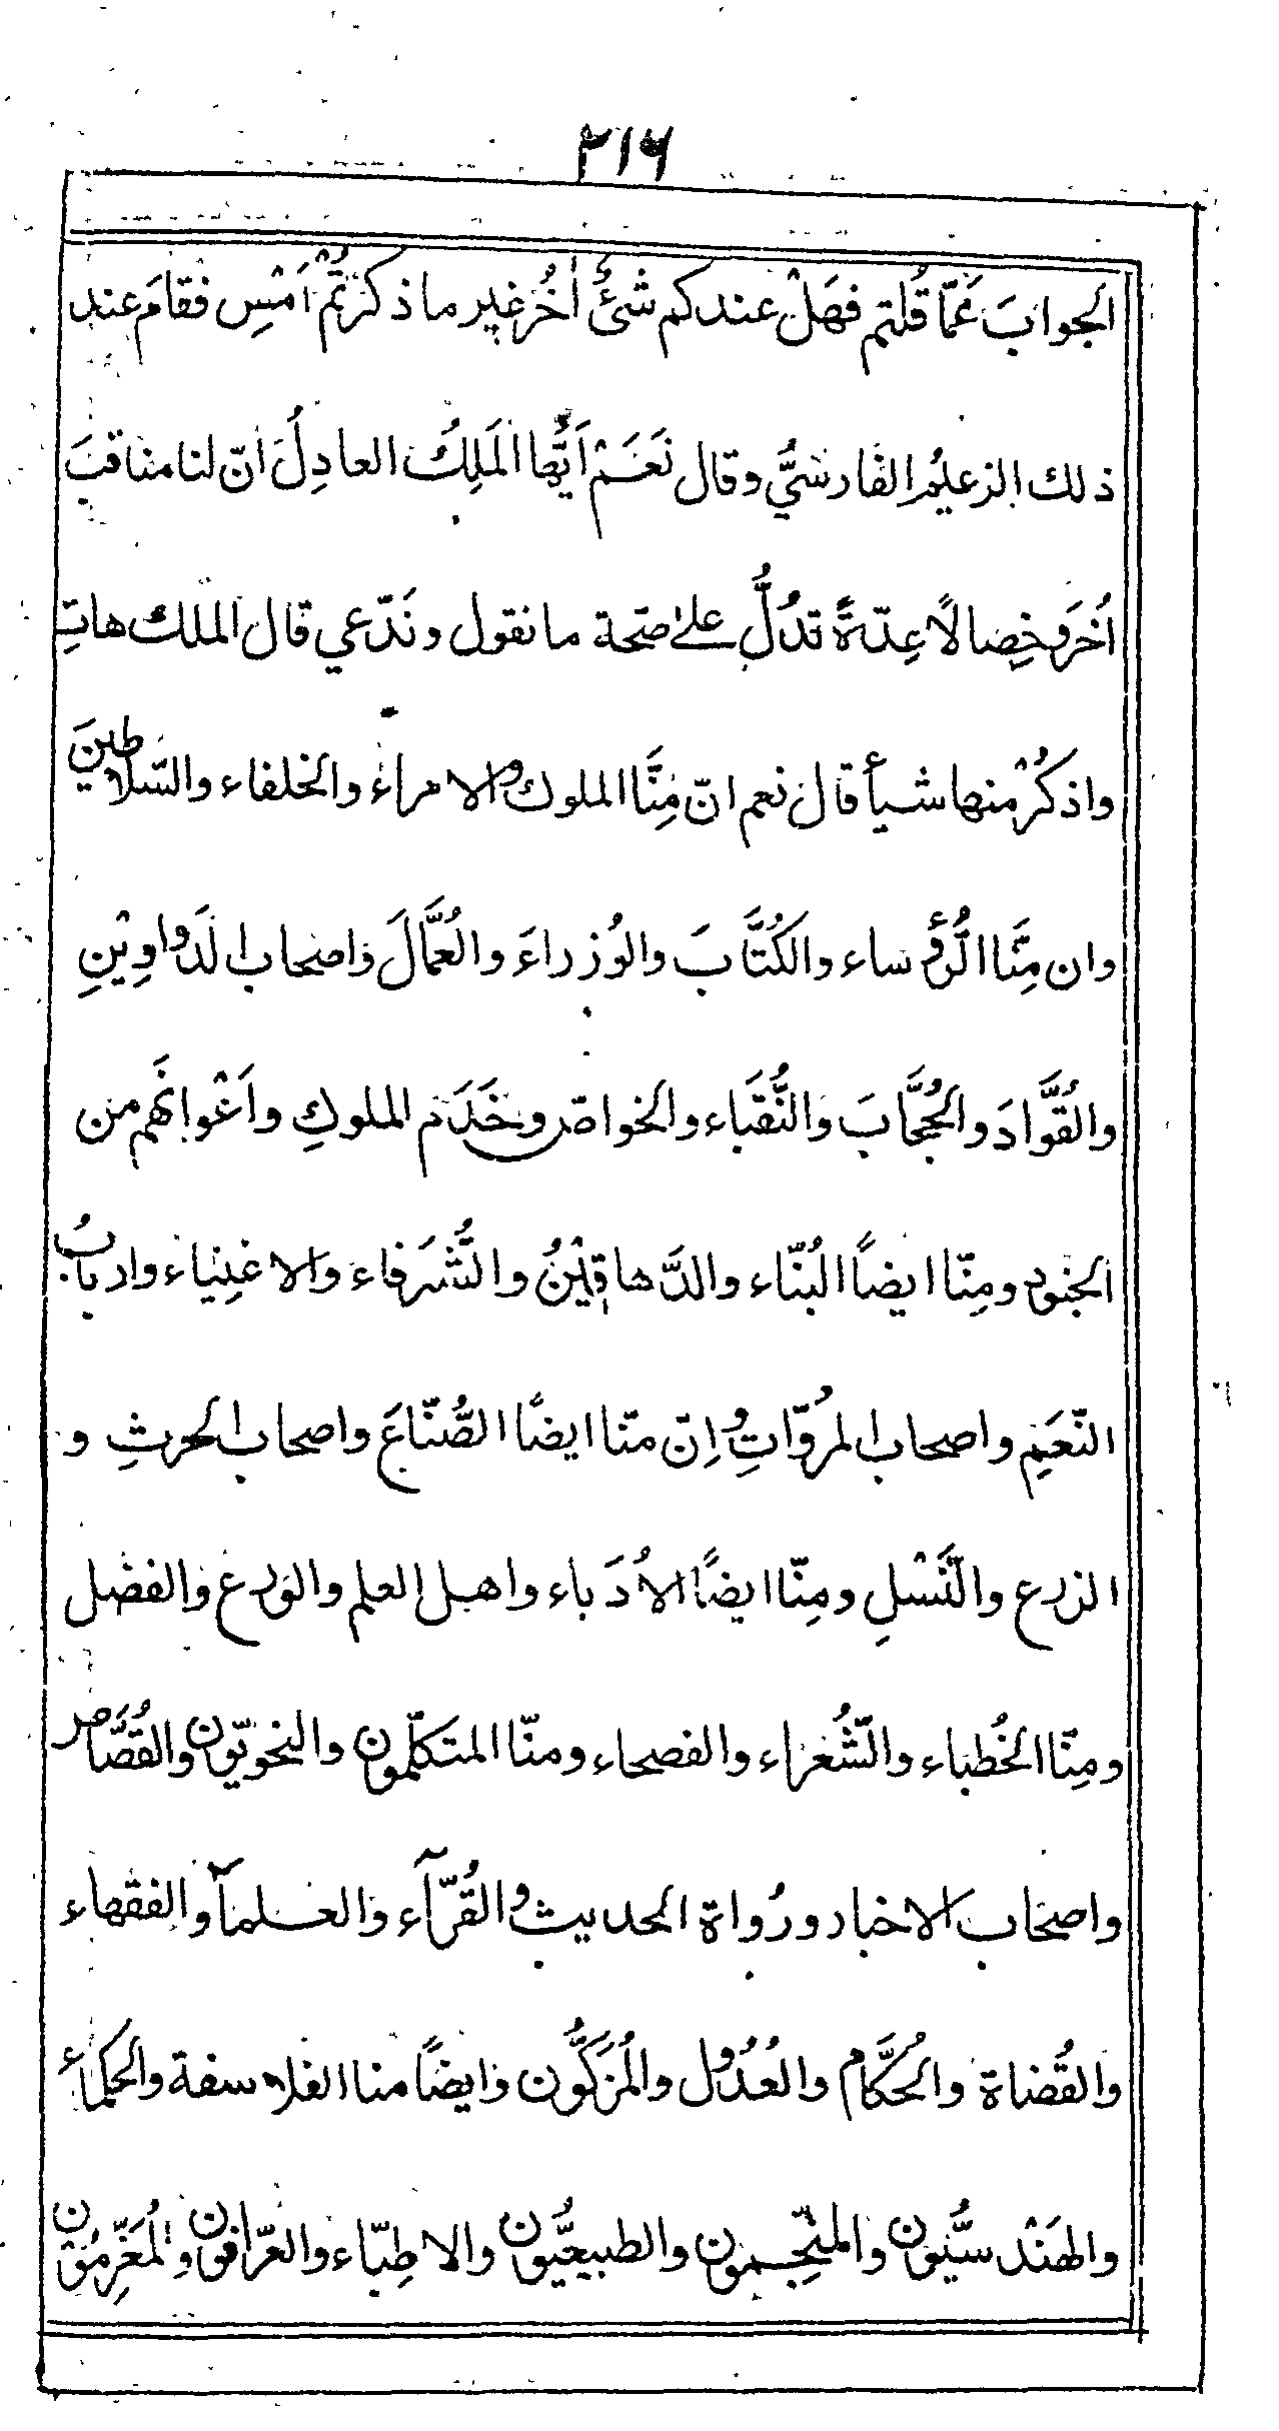 ٢١٦
الجوابَ عَمّا قُلتم فهَلْ عندكم شئٌ أُخُر غير ما ذكرتُمْ اَمْسِ فقامَ عند
ذلك الزعليمُ الفارسيُّ وقال نَعَمْ اَيُّها المَلِكُ العادِلُ انّ لنا مناقبَ
اُخَرَ وخِصالاً عِدّةً تدُلُّ علىٰ صّحة ما نقول ونَدّعي قال الملك هاتِ
واذكُرْ منها شيأ قال نعم انّ مِنَّا الملوك والامراءَ والخلفاء والسّلاطينَ
وان مِنَّا الرُّؤساء والكُتَّابَ والوُزراءَ والعُمَّالَ واصحاب الدَواوِيْنِ
والقُوَّادَ والحُجَّابَ والنُّقَباء والخواصّ وخَدَم الملوكِ واَعْوانَهم من
الجنود ومِنّا ايضاً البُنّاء والدَّهاقِيْنُ والشُّرَفاء والاغنِياء واربابُ
النّعَيِم واصحاب المرُوّاتِ واِنّ منّا ايضًا الصُّنّاعَ واصحاب الحرثِ و
الزرع والنَّسْلِ ومِنّا ايضًا الاُدَباء واهل العلم والورع والفضل
ومِنّا الخُطَباء والشُّعراء والفصحاء ومنّا المتكلّمون والنحويّون والقُصَّاص
واصحاب الاخبار ورُواة الحديث والقُرّآء والعلمآ والفقهاء
والقُضاة والحُكَّام والعُدُول والمُزَكُّون وايضًا منا الفلاسفة والحكماء
والهَنْدسيُّون والمنّجِمون والطبيعيُّون والاطِبّاء والعرّافون والمُعَزِّمُون